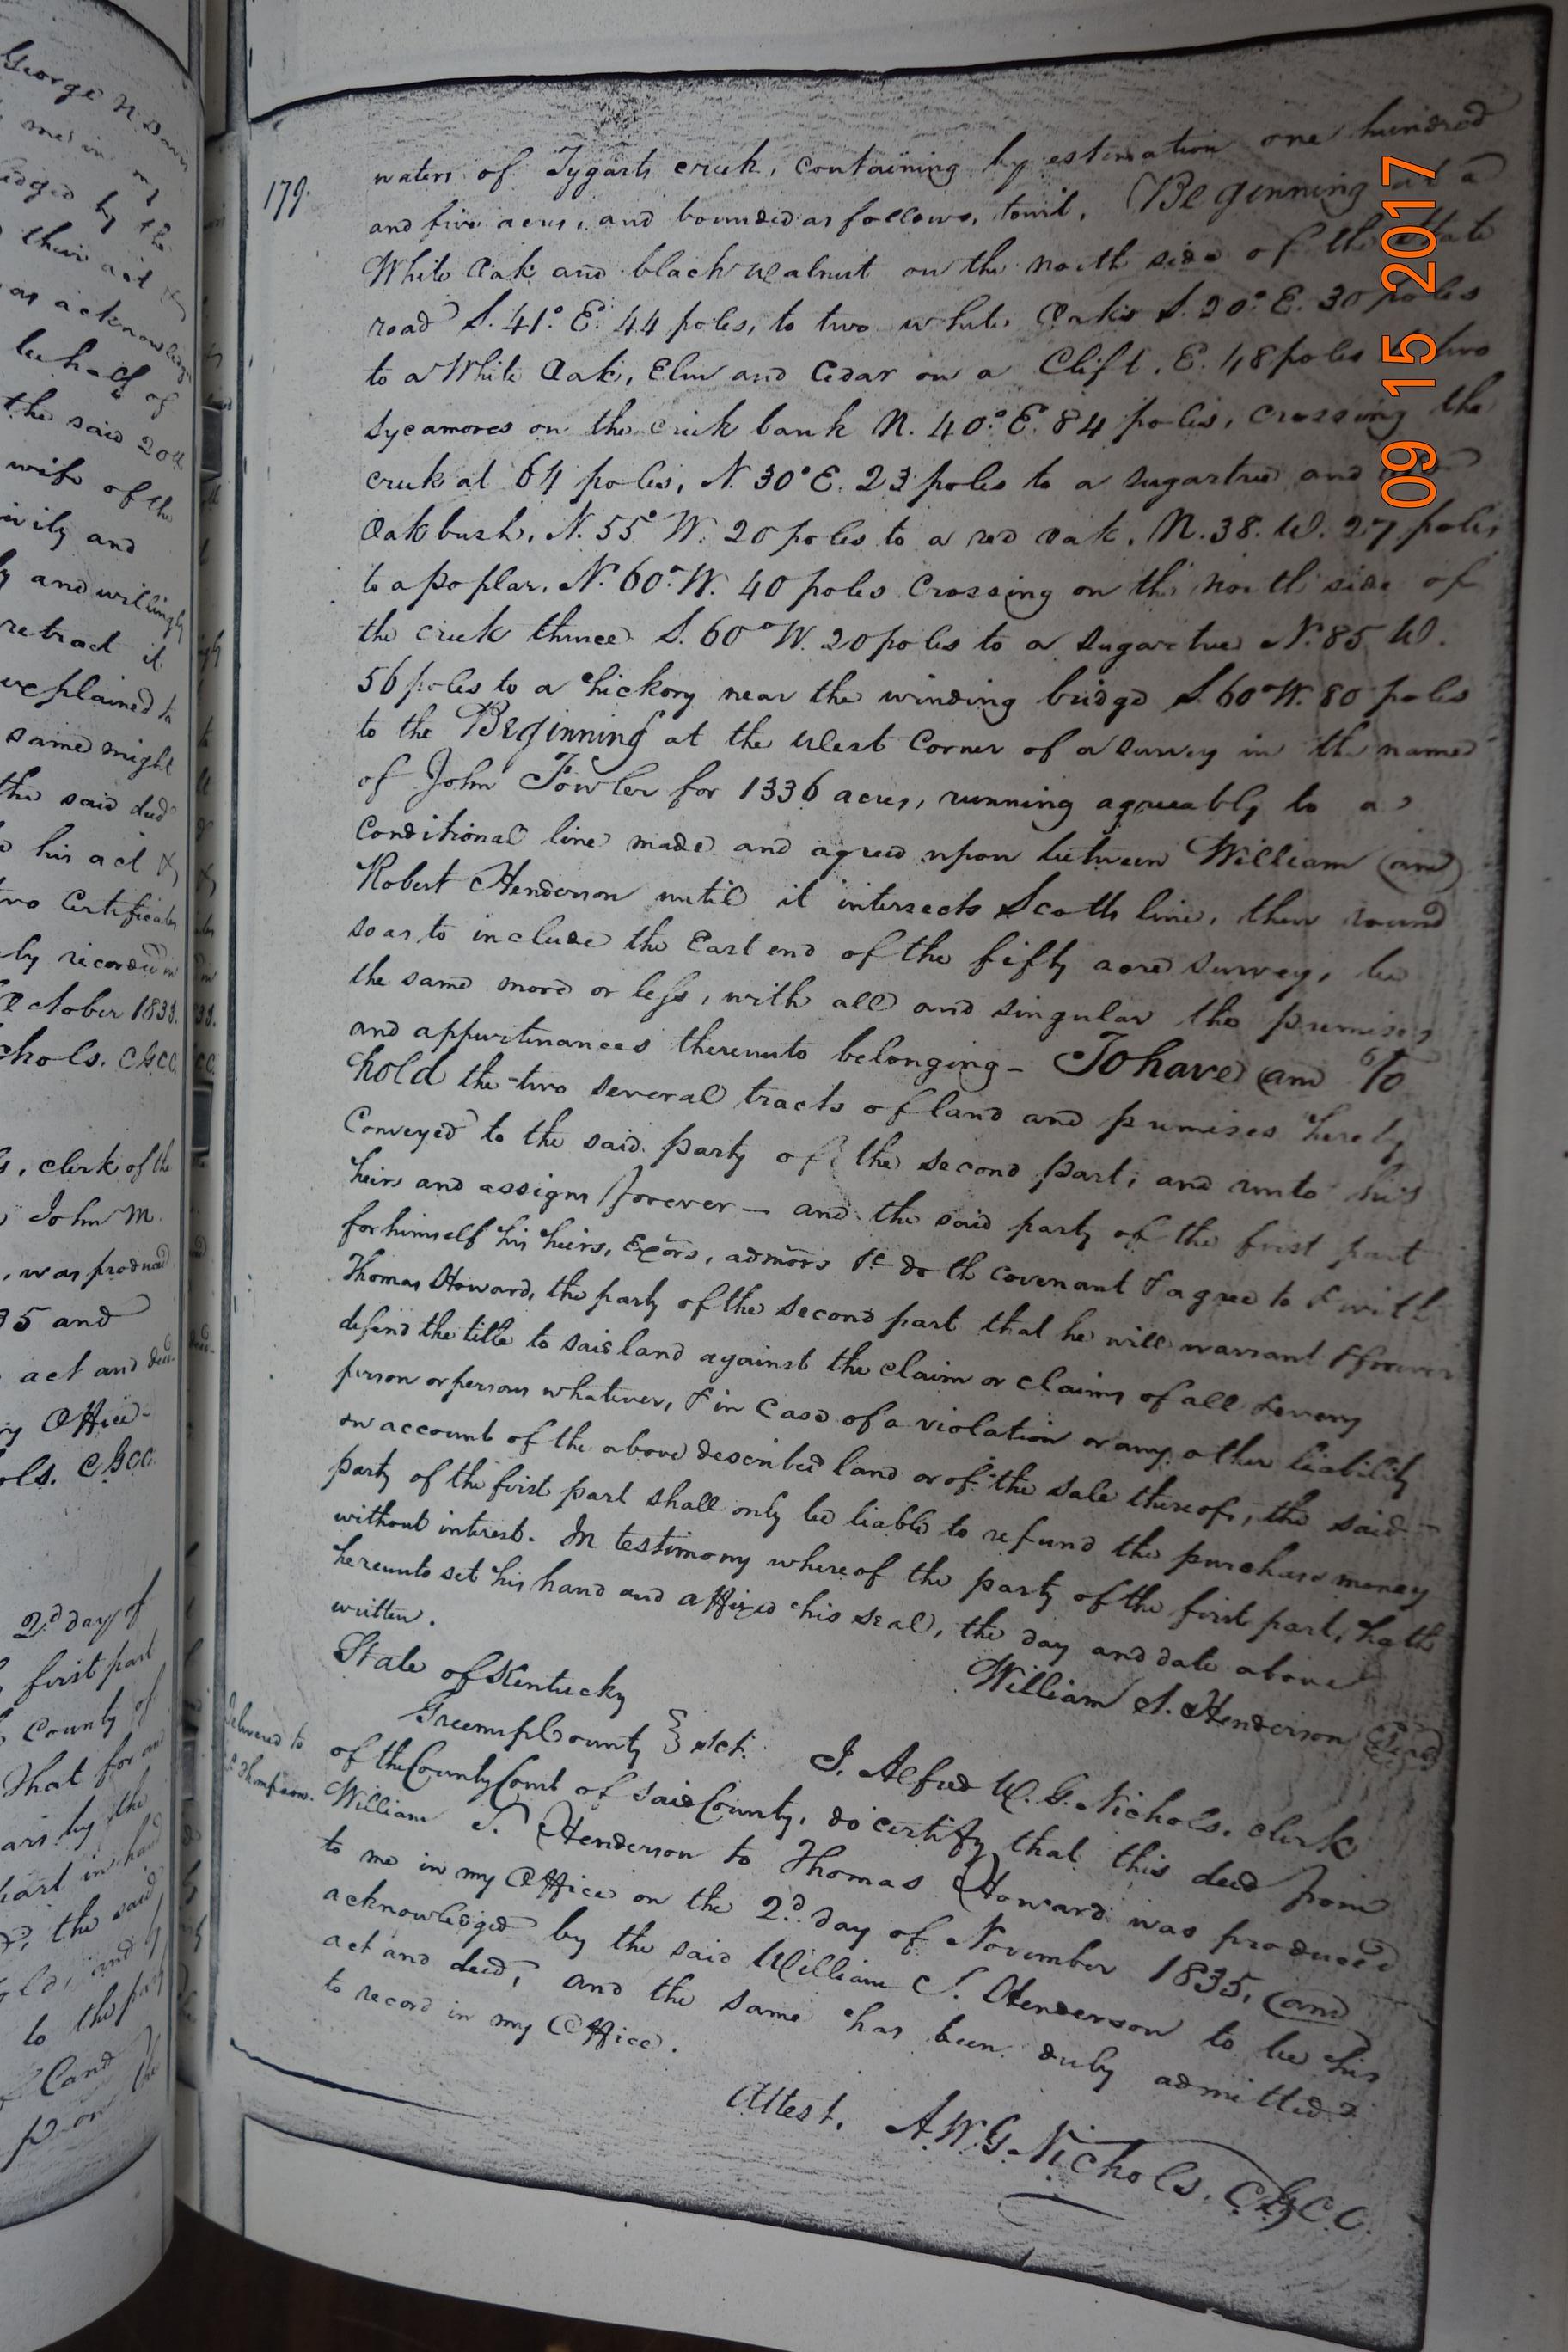 George N. Davis
me in
and the
their act &
as acknowledge
behalf of
the said 20th
wife of the
and
and willingly
retract it
explained to
same might
the said deed
his act &
Certificates
by recorded in
October 1835.
chols. CGCC.
clerk of the
John M.
, was produced
35 and
act and deed
Office-
ols. CGCC.
2d day of
first part
County of
That for and
by the
part in hand
the said
and
to the party
Land
179.
waters of Tygarts creek, containing by estimation one hundred
and five acres, and bounded as follows, towit, Beginning at a
White Oak and black walnut on the north side of the State
road S. 41° E. 44 poles, to two white Oaks S. 20° E. 30 poles
to a White Oak, Elm and Cedar on a Clift, E. 48 poles two
sycamores on the creek bank N. 40° E. 84 poles, crossing the
creek at 64 poles, N. 30° E. 23 poles to a sugartree and
Oak bush, N. 55° W. 20 poles to a red oak, N. 38. W. 27 poles
to a poplar, N. 60° W. 40 poles Crossing on the north side of
the creek thence S. 60° W. 20 poles to a sugartree N. 85 W.
56 poles to a hickory near the winding bridge S. 60° W. 80 poles
to the Beginning at the West Corner of a survey in the name
of John Fowler for 1336 acres, running agreeably to a
Conditional line made and agreed upon between William and
Robert Henderson until it intersects Scotts line, then round
so as to include the East end of the fifty acre survey, be
the same more or less, with all and singular the premises
and appurtenances thereunto belonging - To have and To
hold the two several tracts of land and premises hereby
Conveyed to the said party of the second part, and unto his
heirs and assigns forever - and the said party of the first part
for himself his heirs, Exors, admors &c doth covenant & agree to & with
Thomas Howard, the party of the second part that he will warrant & forever
defend the title to said land against the claim or claims of all & every
person or persons whatever, & in case of a violation or any other liability
on account of the above described land or of the sale thereof, the said
party of the first part shall only be liable to refund the purchase money
without interest. In testimony whereof the party of the first part, hath
hereunto set his hand and affixed his seal, the day and date above
written.
William S. Henderson Seal
State of Kentucky
Greenup County } sct.
I. Alfred W. G. Nichols, clerk
of the County Court of said County, do certify that this deed from
William S. Henderson to Thomas Howard was produced
to me in my Office on the 2d. day of November 1835, and
acknowledged by the said William S. Henderson to be his
act and deed, and the same has been duly admitted
to record in my Office.
Attest, A. W. G. Nichols, CGCC.
Delivered to
Thompson.
09 15 2017